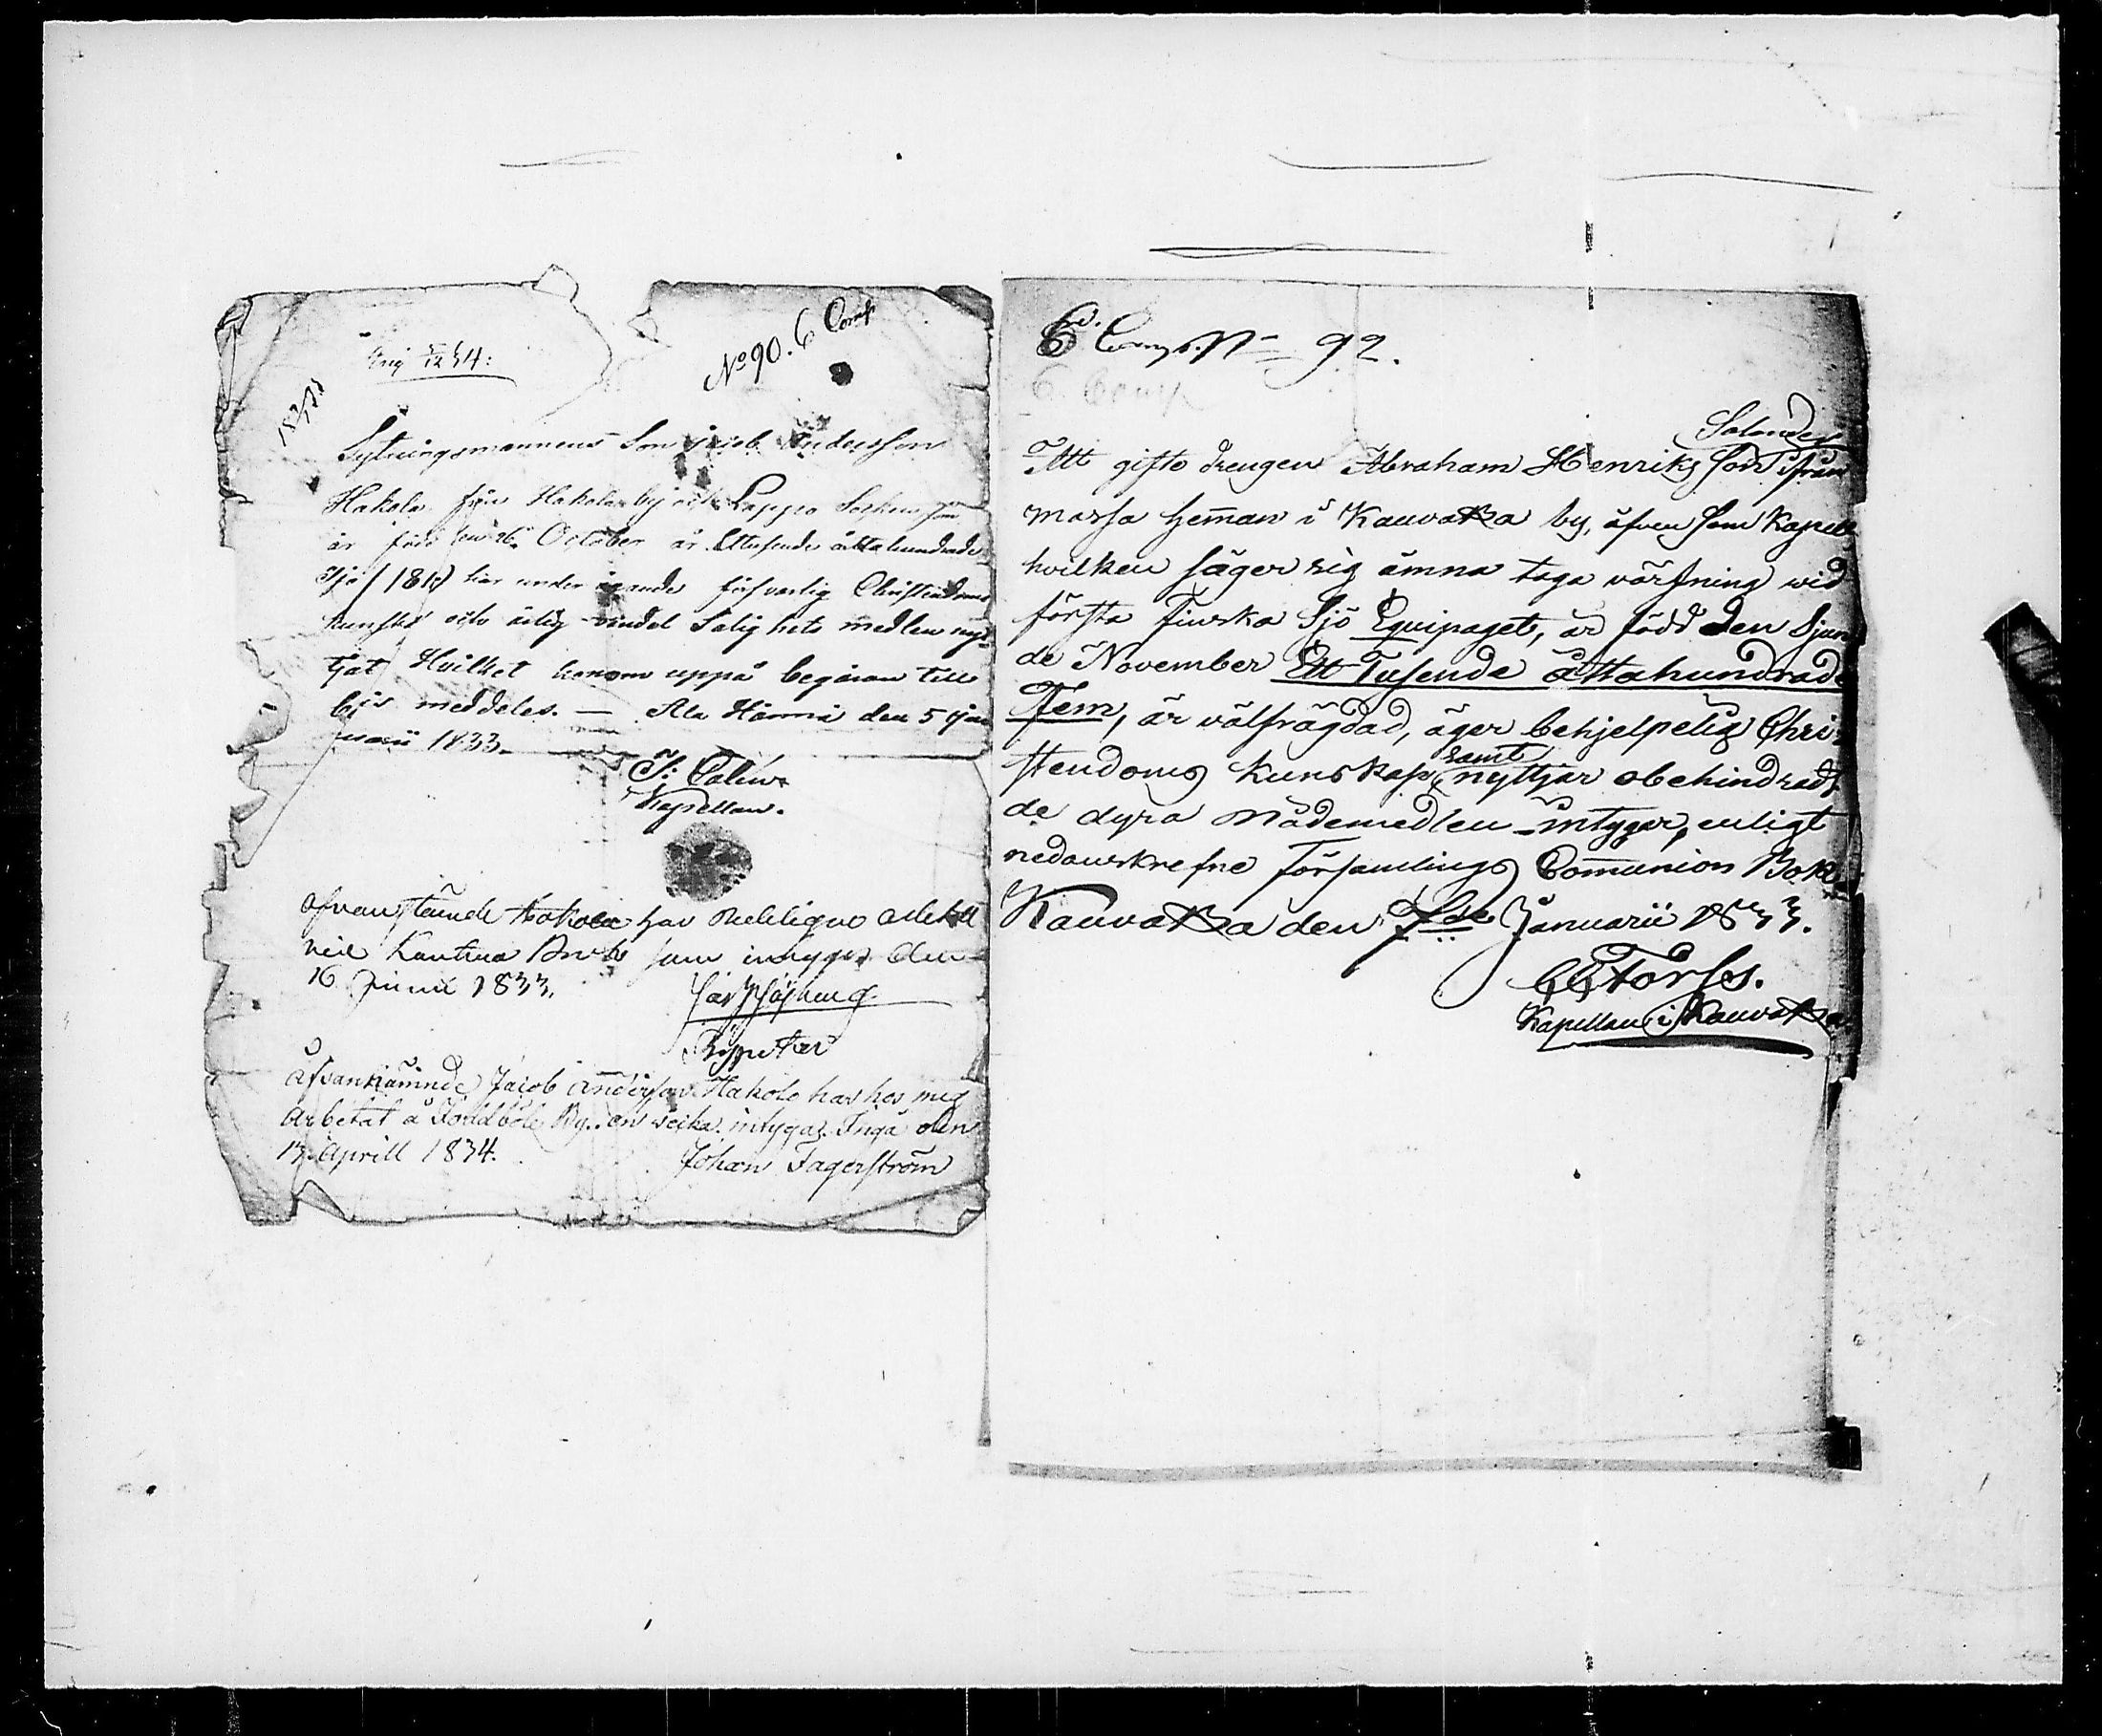 No 90. 6 Comp
Sytningsmannens Son Jacob Andersson
Hakola från Hakola by och Lappo Sochn som
är född den 26 October år Ettusende åttahundrade
har under ägande försvarlig Christendoms
kunskap Salighets medlen nytt-
jat Hvilket honom uppå begäran till
bevis meddeles. — Ala Härmä den 5 Jan
uarii 1833.
Kapellan.
ofvanstående Hakola har
vid Bruk som intygas den
16 Junii 1833.
Åfvannämnde Jacob Andersson Hakola har hos mig
Arbetat å By. en vecka. intygas. Ingå den
Aprill 1834.
Johan Fagerström
6 Comp. No 92.
6. Comp
Solander
Att gifte drengen Abraham Henriks Son ifrån
Massa heman i Kauvatsa by, äfven som Kapell
hvilken säger sig ämna taga värfning wid
första Finska Sjö Equipaget, är född den Sjun
de November Ett Tusende åttahundrade
Fem, är välfrägdad, äger behjelpelig Chri-
stendoms kunskap, samt nyttjar obehindradt
de dyra Nådemedlen - intygar, enligt
nedanskrefne Församlings Communion Bok
Kauvatsa den 7de Januarii 1833.
Forss.
Kapellan i Kauvatsa.